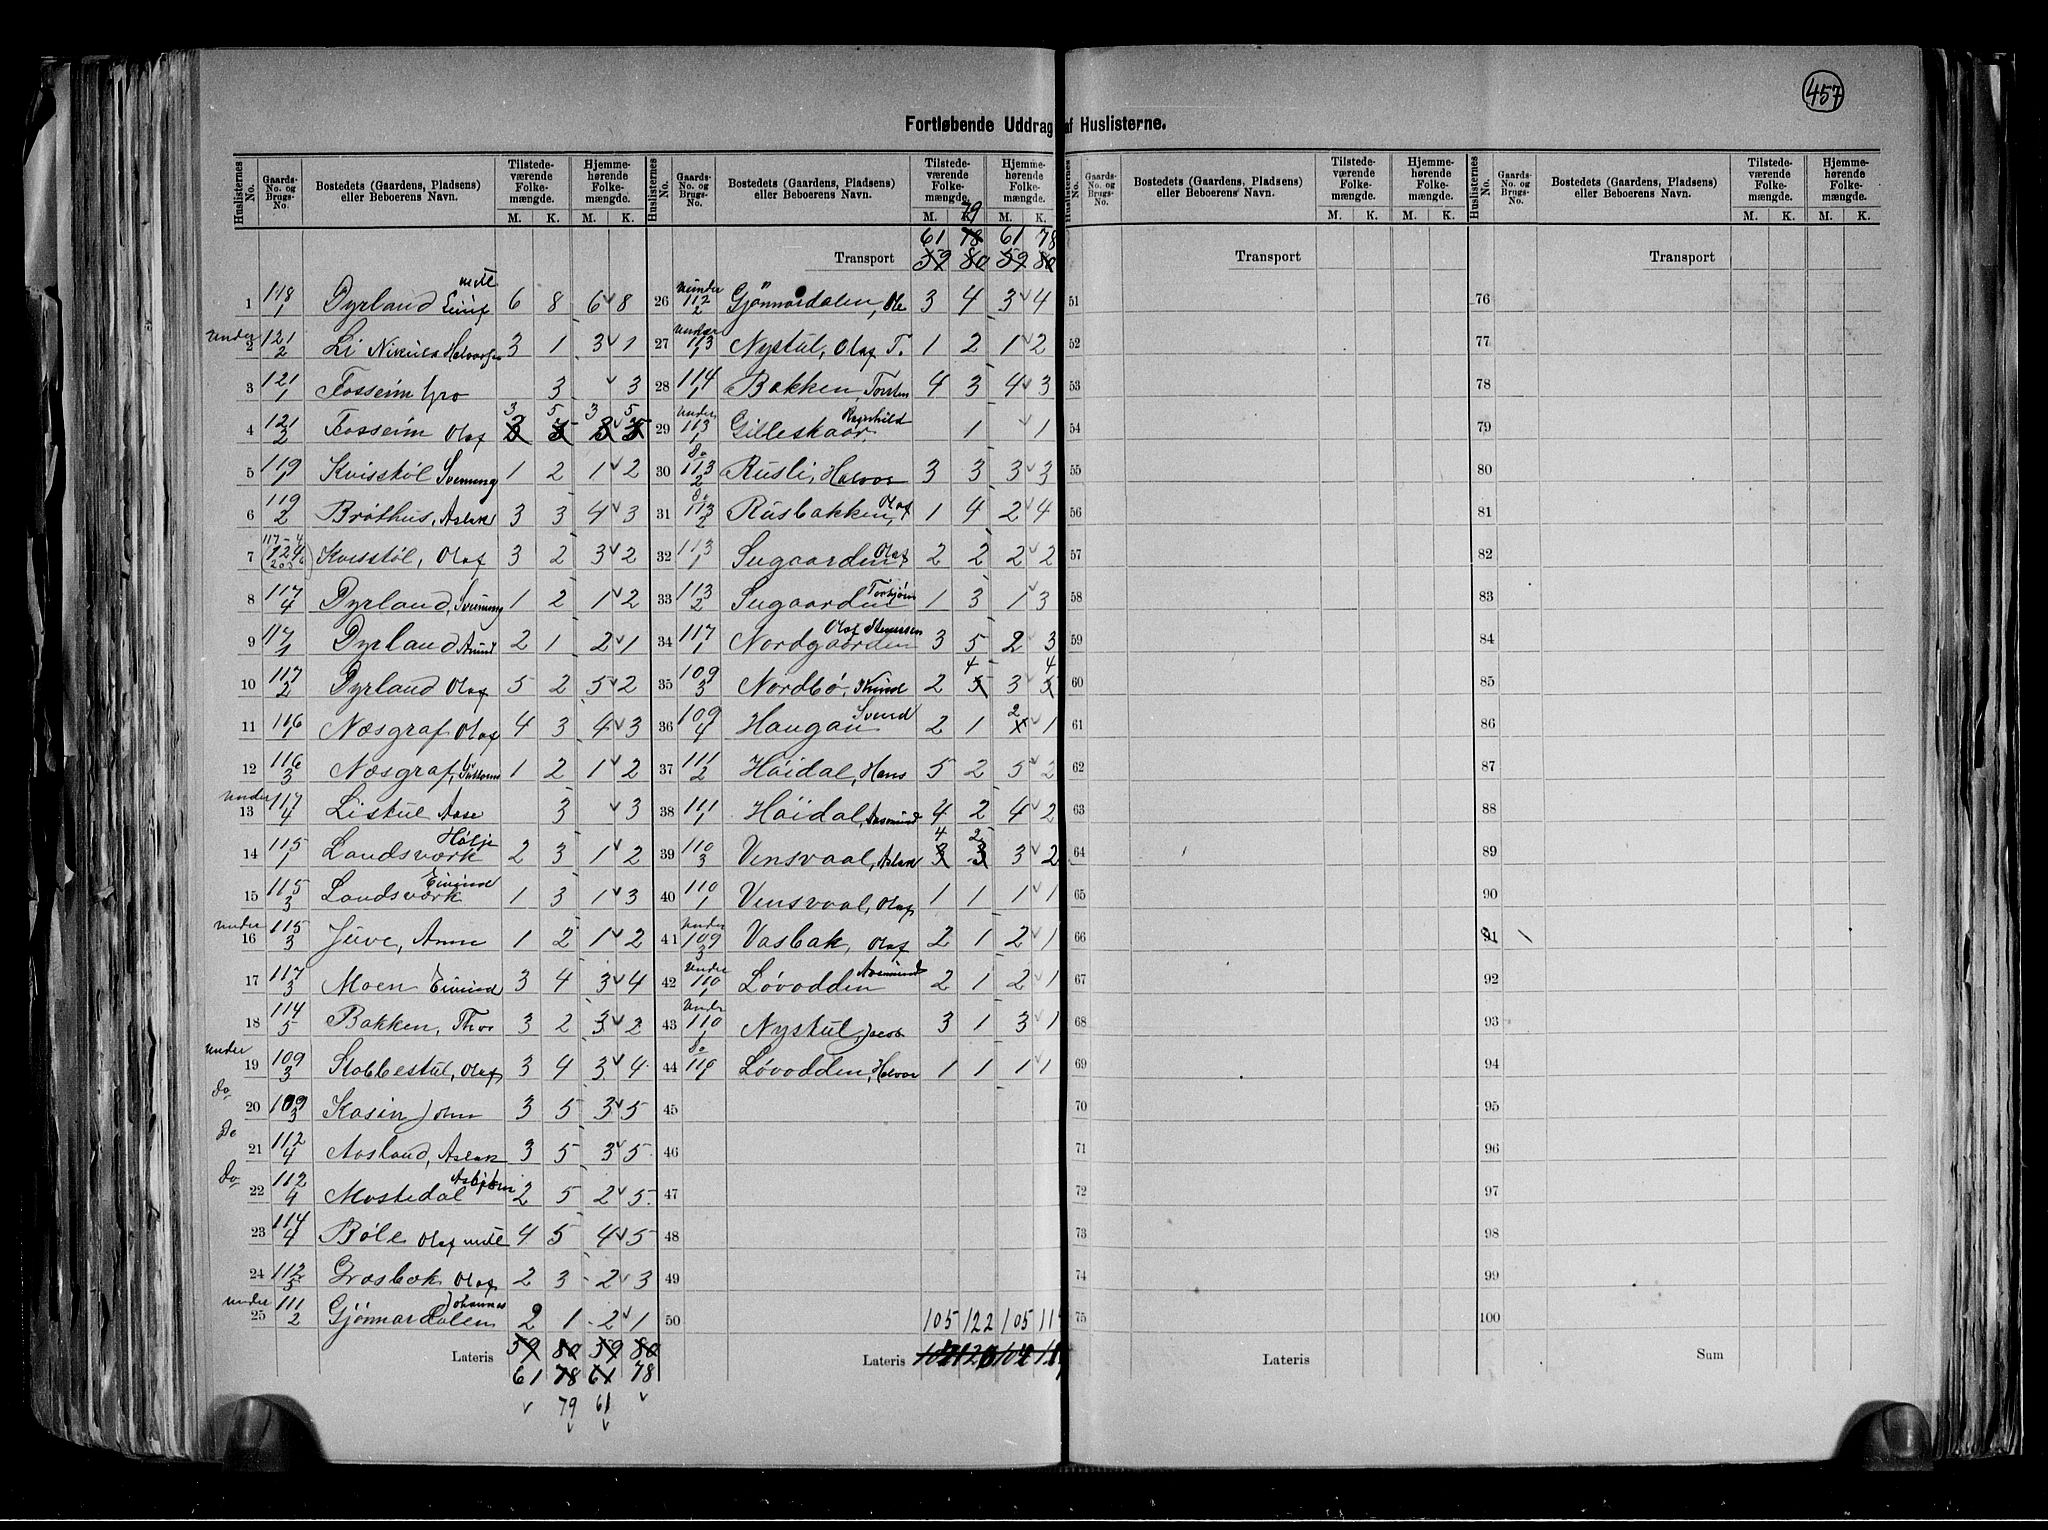 457
Fortløbende Uddrag af Huslisterne.
Huslisternes No. Gaards-No. og Brugs-No. Bostedets (Gaardens, Pladsens) eller Beboerens Navn. Tilstedeværende Folkemængde. M. K. Hjemmehørende Folkemængde. M. K.
1 118/1 Dyrland 6 8 6 8
under 2 121/2 Li Nikuls Halvorsen 3 1 3 1
3 121/1 Fosseim Gro 3 3
4 121/2 Fosseim Olaf 3 5 3 5
5 119/1 Kvisstøl Svenung 1 2 1 2
6 119/2 Brøthus, Aslak 3 3 4 3
7 Kvisstøl, Olaf 3 2 3 2
8 117/4 Dyrland, Svenung 1 2 1 2
9 117/1 Dyrland Amund 2 1 2 1
10 117/2 Dyrland Olaf 5 2 5 2
11 116/1 Næsgraf Olaf 4 3 4 3
12 116/3 Næsgraf, 1 2 1 2
under 13 117/4 Listul Aase 3 3
14 115/1 Landsværk Hølje 2 3 1 2
15 115/3 Landsværk Eivind 1 3 1 3
under 16 115/3 Juve, Anne 1 2 1 2
17 117/3 Moen Eivind 3 4 3 4
18 114/5 Bakken, Thor 3 2 3 2
under 19 109/3 Stobbestul, Olaf 3 4 3 4
do 20 109/3 Kasin John 3 5 3 5
Do 21 112/4 Aasland, Aslak 3 5 3 5
Do 22 112/4 Mostedal Asbjørn 2 5 2 5
23 114/4 Bøle Olaf 4 5 4 5
24 112/3 Græsbæk Olaf 2 3 2 3
under 25 111/2 Gjønnardalen Johannes 2 1 2 1
Lateris 59 80 59 80
61 78 61 78
79 61
Huslisternes No. Gaards-No. og Brugs-No. Bostedets (Gaardens, Pladsens) eller Beboerens Navn. Tilstedeværende Folkemængde. M. K. Hjemmehørende Folkemængde. M. K.
79
61 78 61 78
Transport 59 80 59 80
26 under 112/2 Gjønnardalen, Ole 3 4 3 4
27 under 113/1 Nystul, Olaf T. 1 2 1 2
28 114/1 Bakken, Torsten 4 3 4 3
29 under 113/1 Gilleskaar Ragnhild 1 1
30 Do 113/2 Rusli, Halvor 3 3 3 3
31 do 113/2 Rusbakken, Olaf 1 4 2 4
32 113/1 Sugaarden Olaf 2 2 2 2
33 113/2 Sugaarden Torbjørn 1 3 1 3
34 117/1 Nordgaarden Olaf Stenersen 3 5 2 3
35 109/3 Nordbø, Knud 2 4 3 4
36 109/4 Haugan Svend 2 1 2 1
37 111/2 Høidal, Hans 5 2 5 2
38 111/1 Høidal, Aasmund 4 2 4 2
39 110/3 Vensvaal, Aslak 4 2 3 2
40 110/1 Vensvaal, Olaf 1 1 1 1
41 under 109/3 Vasbak, Olaf 2 1 2 1
42 under 110/1 Løvodden Aasmund 2 1 2 1
43 under 110/1 Nystul, Jacob 3 1 3 1
44 Do Løvodden, Halvor 1 1 1 1
45
46
47
48
49
50 105 122 105
Lateris
Huslisternes No. Gaards-No. og Brugs-No. Bostedets (Gaardens, Pladsens) eller Beboerens Navn. Tilstedeværende Folkemængde. M. K. Hjemmehørende Folkemængde. M. K.
Transport
51
52
53
54
55
56
57
58
59
60
61
62
63
64
65
66
67
68
69
70
71
72
73
74
75
Lateris
Huslisternes No. Gaards-No. og Brugs-No. Bostedets (Gaardens, Pladsens) eller Beboerens Navn. Tilstedeværende Folkemængde. M. K. Hjemmehørende Folkemængde. M. K.
Transport
76
77
78
79
80
81
82
83
84
85
86
87
88
89
90
91
92
93
94
95
96
97
98
99
100
Sum